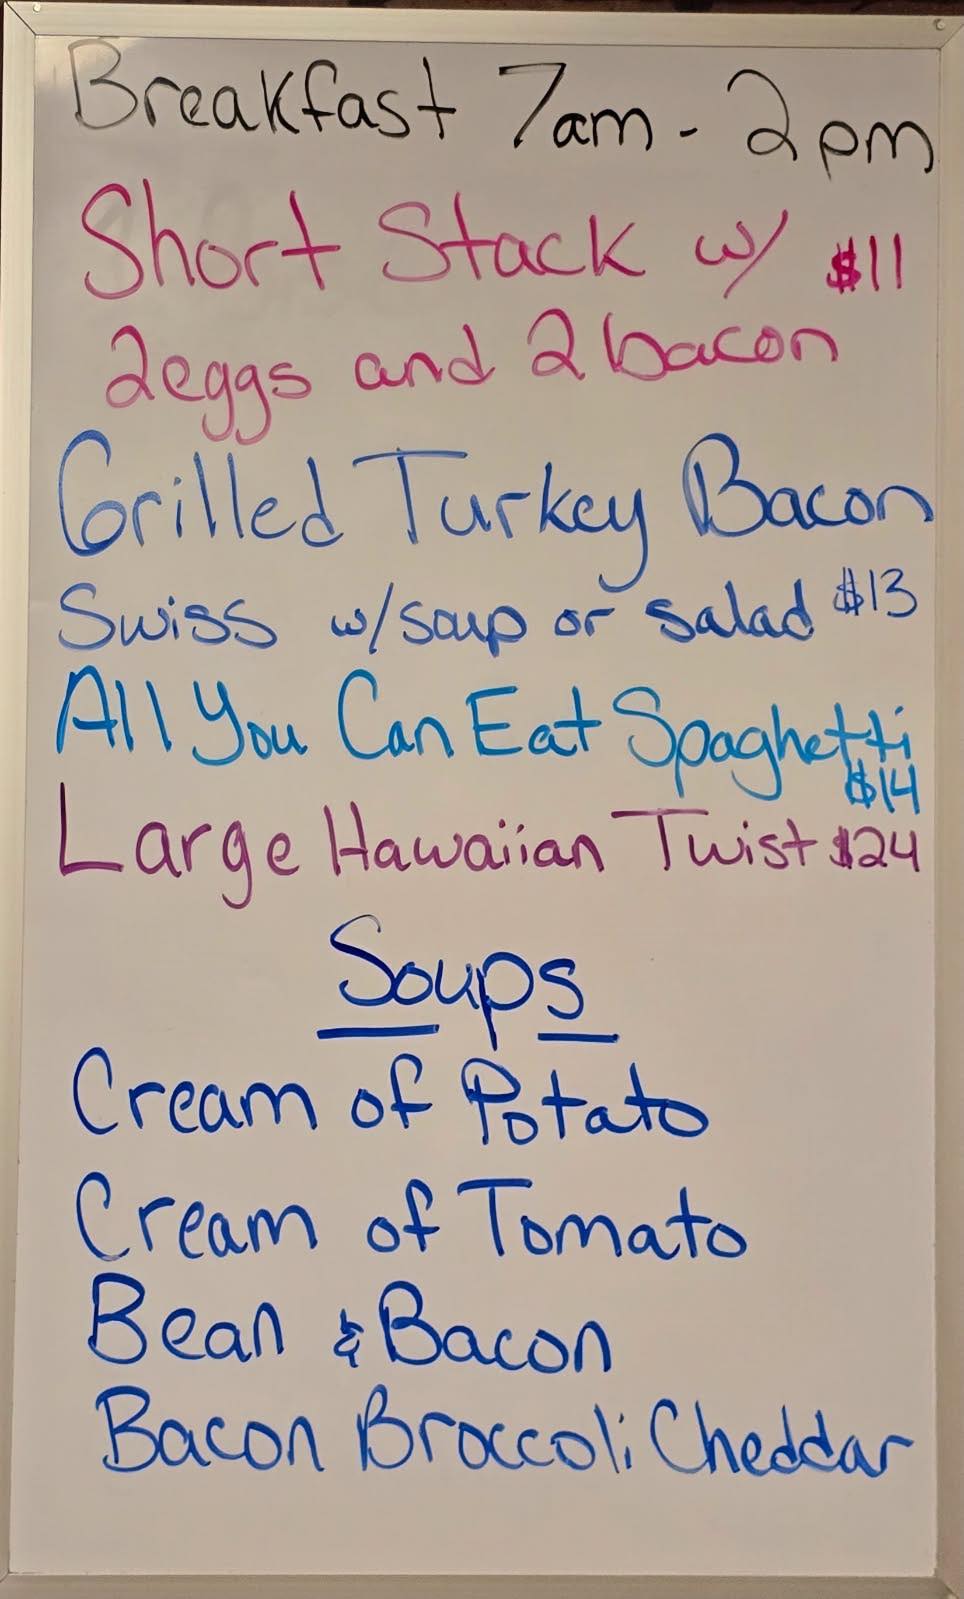 Breakfast 7am - 2pm
Short Stack w/ $11
2eggs and 2 bacon
Grilled Turkey Bacon
Swiss w/soup or salad $13
All You Can Eat Spaghetti
$14
Large Hawaiian Twist $24
Soups
Cream of Potato
Cream of Tomato
Bean & Bacon
Bacon Broccoli Cheddar